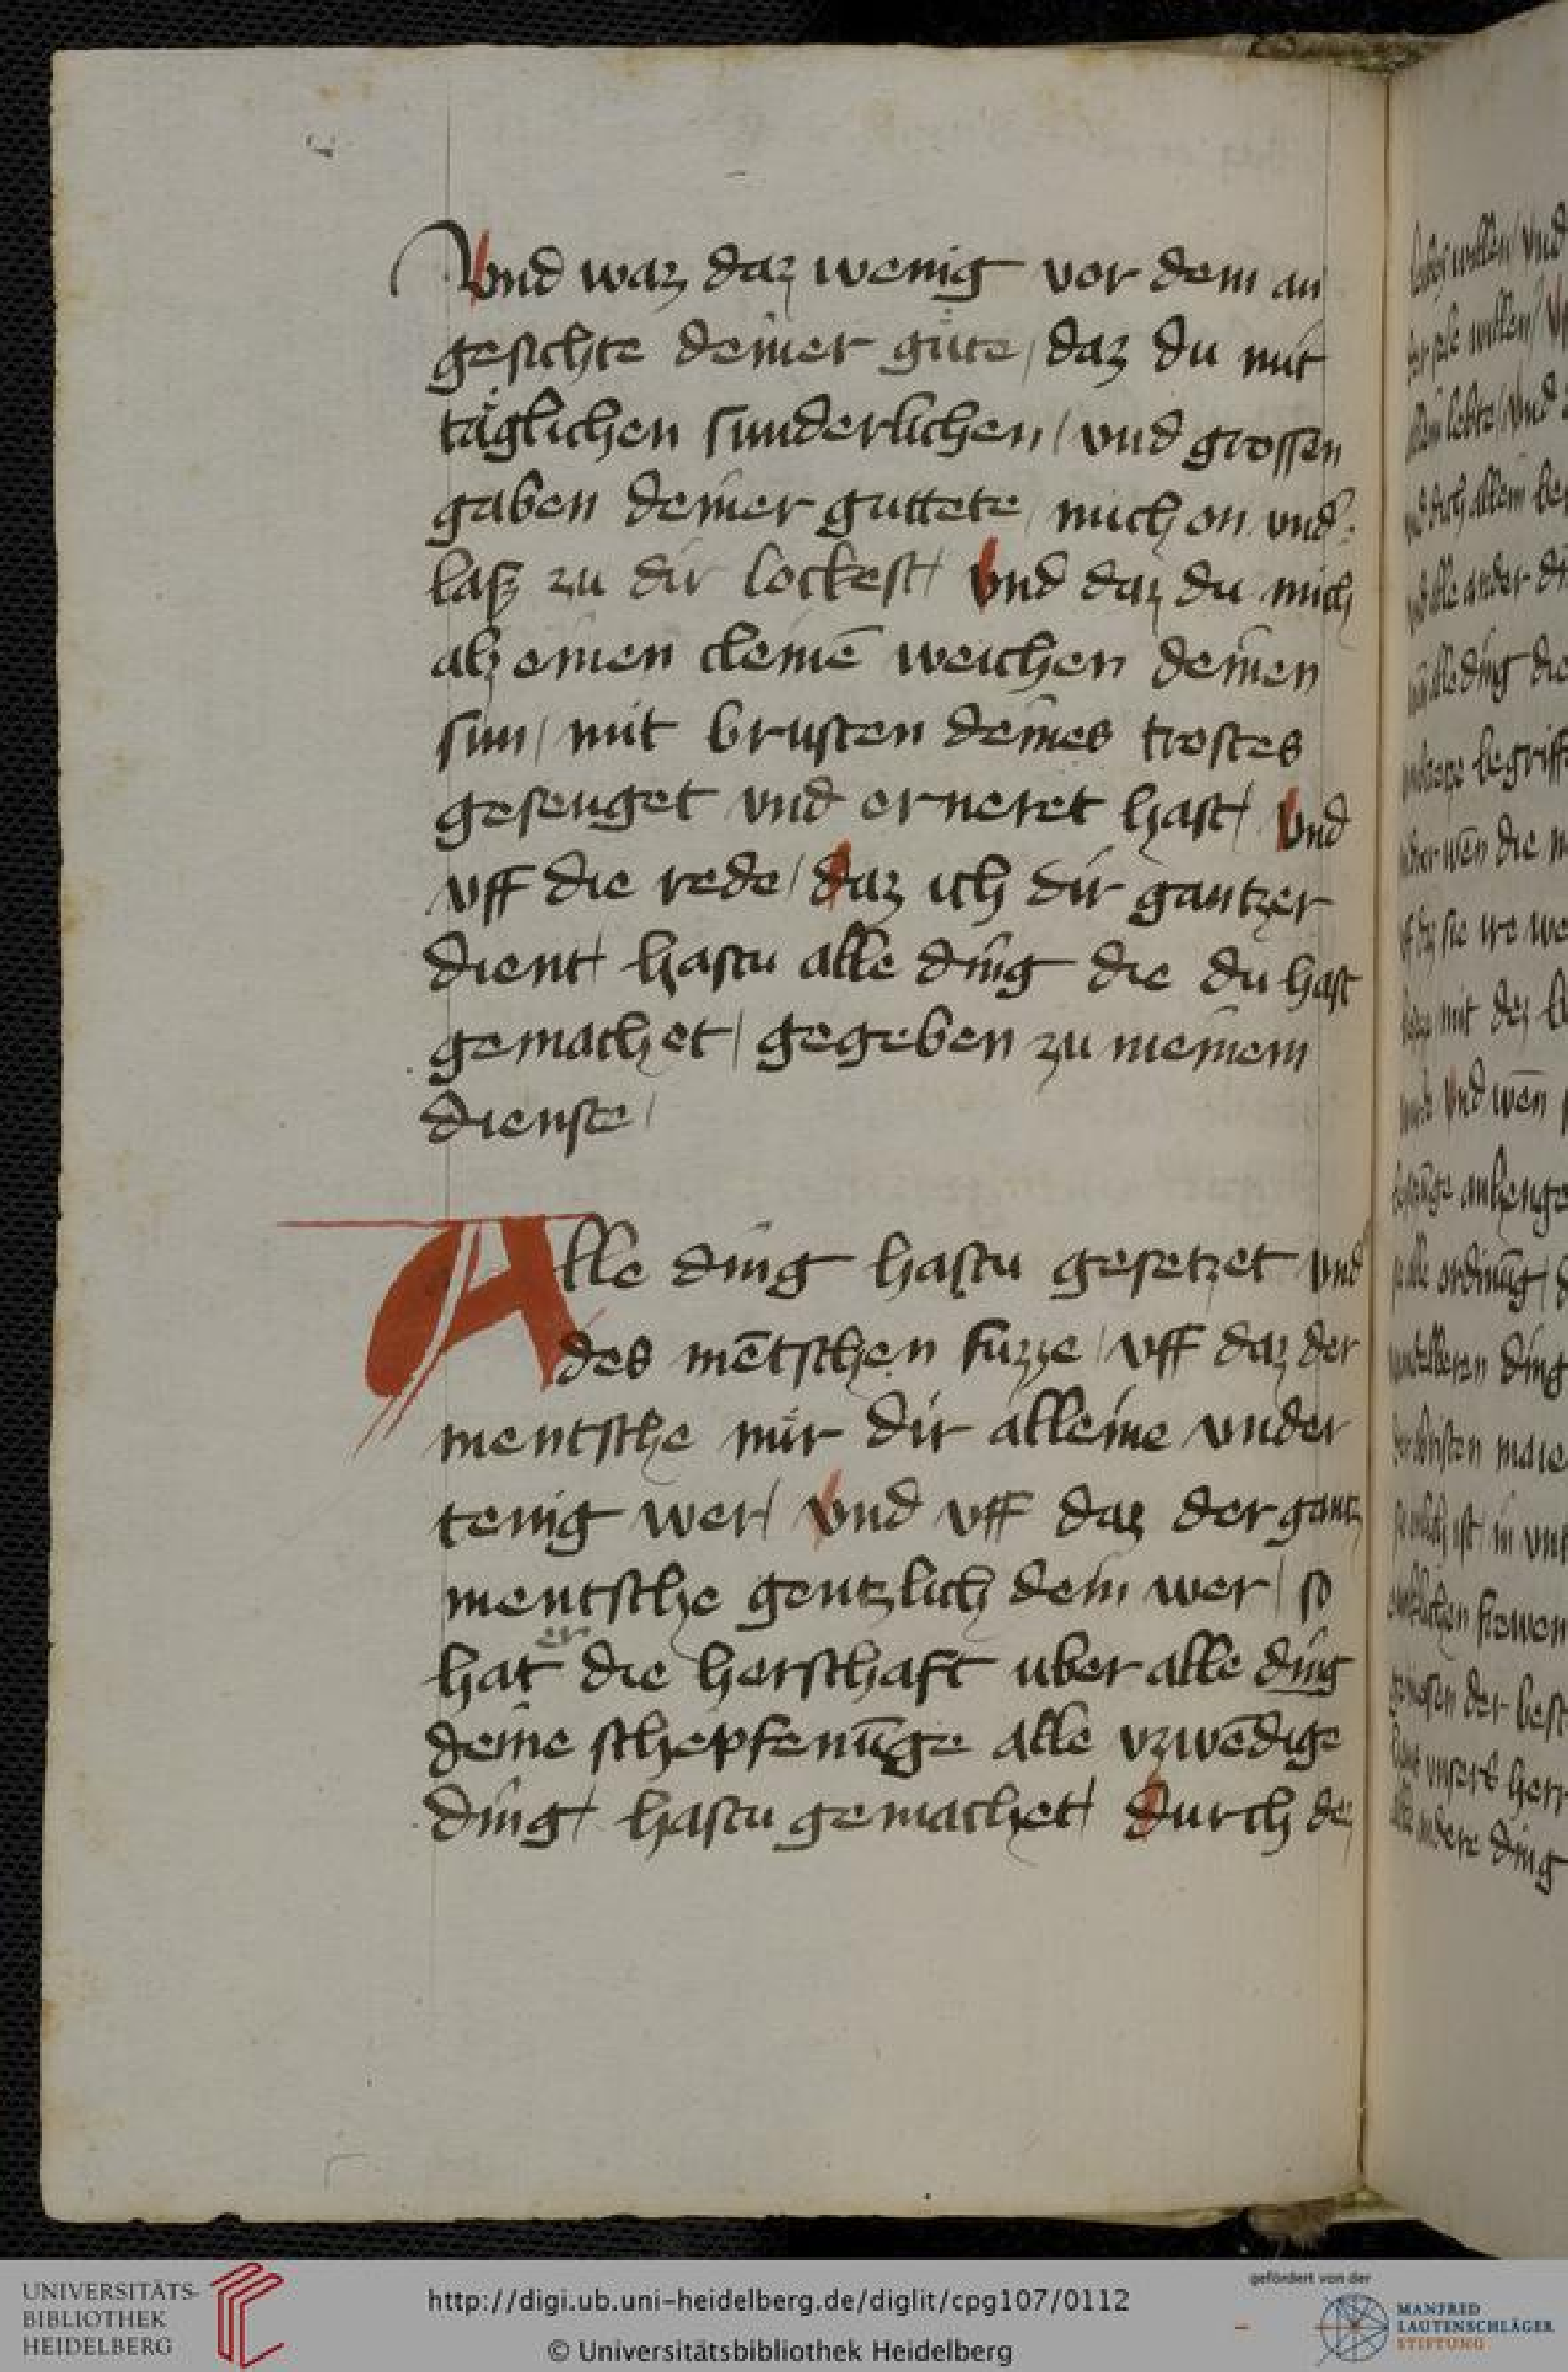 Vnd waz daz wenig vor dem an
gesichte deiner güte / daz du mit
täglichen sunderlichen / vnd grossen
gaben deiner guttete / mich on vnd˸
laß zu dir lockest / Vnd daz du mich
alz einen cleinē weichen deinen
sun / mit brusten deines trostes
geseuget vnd erneret hast / Vnd
vff die rede / daz ich dir gantzer
dient / hastu alle ding die du hast
gemachet / gegeben zu meinem
dienste /
Alle ding hastu gesetzet vnd
des mētschen fuzze / vff daz der
mentsche nür dir alleine vnder
tenig wer / vnd vff daz der gantz
mentsche gentzlich dein wer / so
er
hat die herschaft uber alle ding
deine schepfenūge alle vzwēdige
ding / hastu gemachet / durch dez
vnd
ding
begriff
vnd wēn
anhenge
ordinūg
ding
ist in
der best
vnsers herr
andere ding
UNIVERSITÄTS-
BIBLIOTHEK
HEIDELBERG
http://digi.ub.uni-heidelberg.de/diglit/cpg107/0112
© Universitätsbibliothek Heidelberg
gefördert von der
MANFRED
LAUTENSCHLÄGER
STIFTUNG